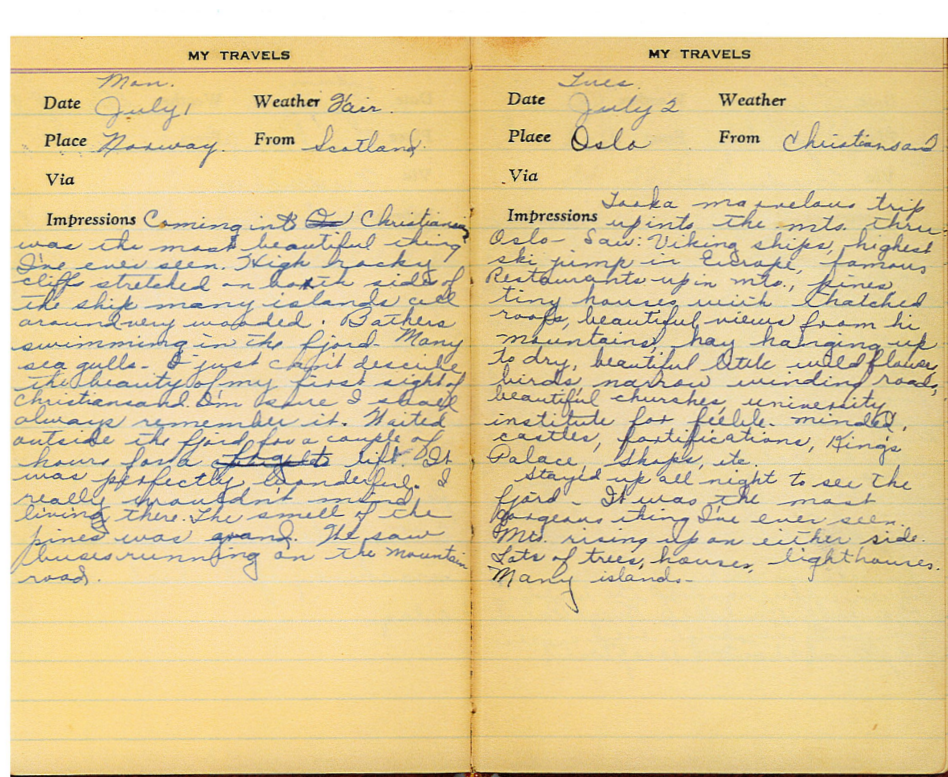 MY TRAVELS
Mon.
Date July 1 Weather Fair.
Place Norway. From Scotland.
Via
Impressions Coming into Christiansand
was the most beautiful thing
I've ever seen. High rocky
cliffs stretched on both side of
the ship many islands all
around very wooded. Bathers
swimming in the fjord. Many
sea gulls - I just can't descibe
the beauty of my first sight of
Christiansand. I'm sure I shall
always remember it. Waited
outside the fjord for a couple of
hours for a lift. It
was perfectly wonderful. I
really wouldn't mind
living there. The smell of the
pines was grand. We saw
buses running on the mountain
road.
MY TRAVELS
Tues
Date July 2 Weather
Place Oslo From Christiansand
Via
Impressions Took a marvelous trip
up into the mts. thru
Oslo - Saw: Viking ships, highest
ski jump in Europe, famous
Restaurants up in mts., pines,
tiny houses with thatched
roofs, beautiful views from hi
mountains, hay hanging up
to dry, beautiful little wildflowers,
birds, narrow winding roads,
beautiful churches, university,
institute for feeble-minded,
castles, fortifications, King's
Palace, shops, etc.
Stayed up all night to see the
fjord - It was the most
gorgeous thing I've ever seen.
Mts. rising up on either side.
Lots of trees, houses, lighthouses.
Many islands -